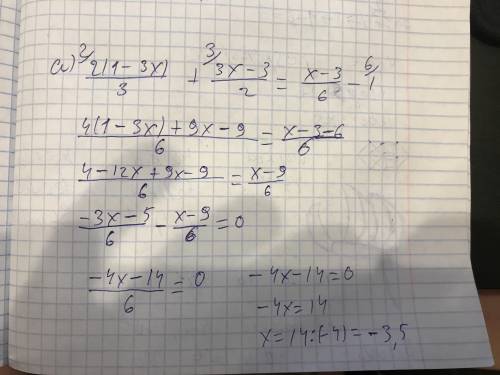 а) ²⁄ 2(1-3x)/3 + ³⁄ (3x-3)/2 = (x-3)/6 - ⁶⁄ 1
(4(1-3x)+9x-9)/6 = (x-3-6)/6
(4-12x+9x-9)/6 = (x-9)/6
(-3x-5)/6 - (x-9)/6 = 0
(-4x-14)/6 = 0
-4x-14=0
-4x=14
x=14:(-4)=-3,5